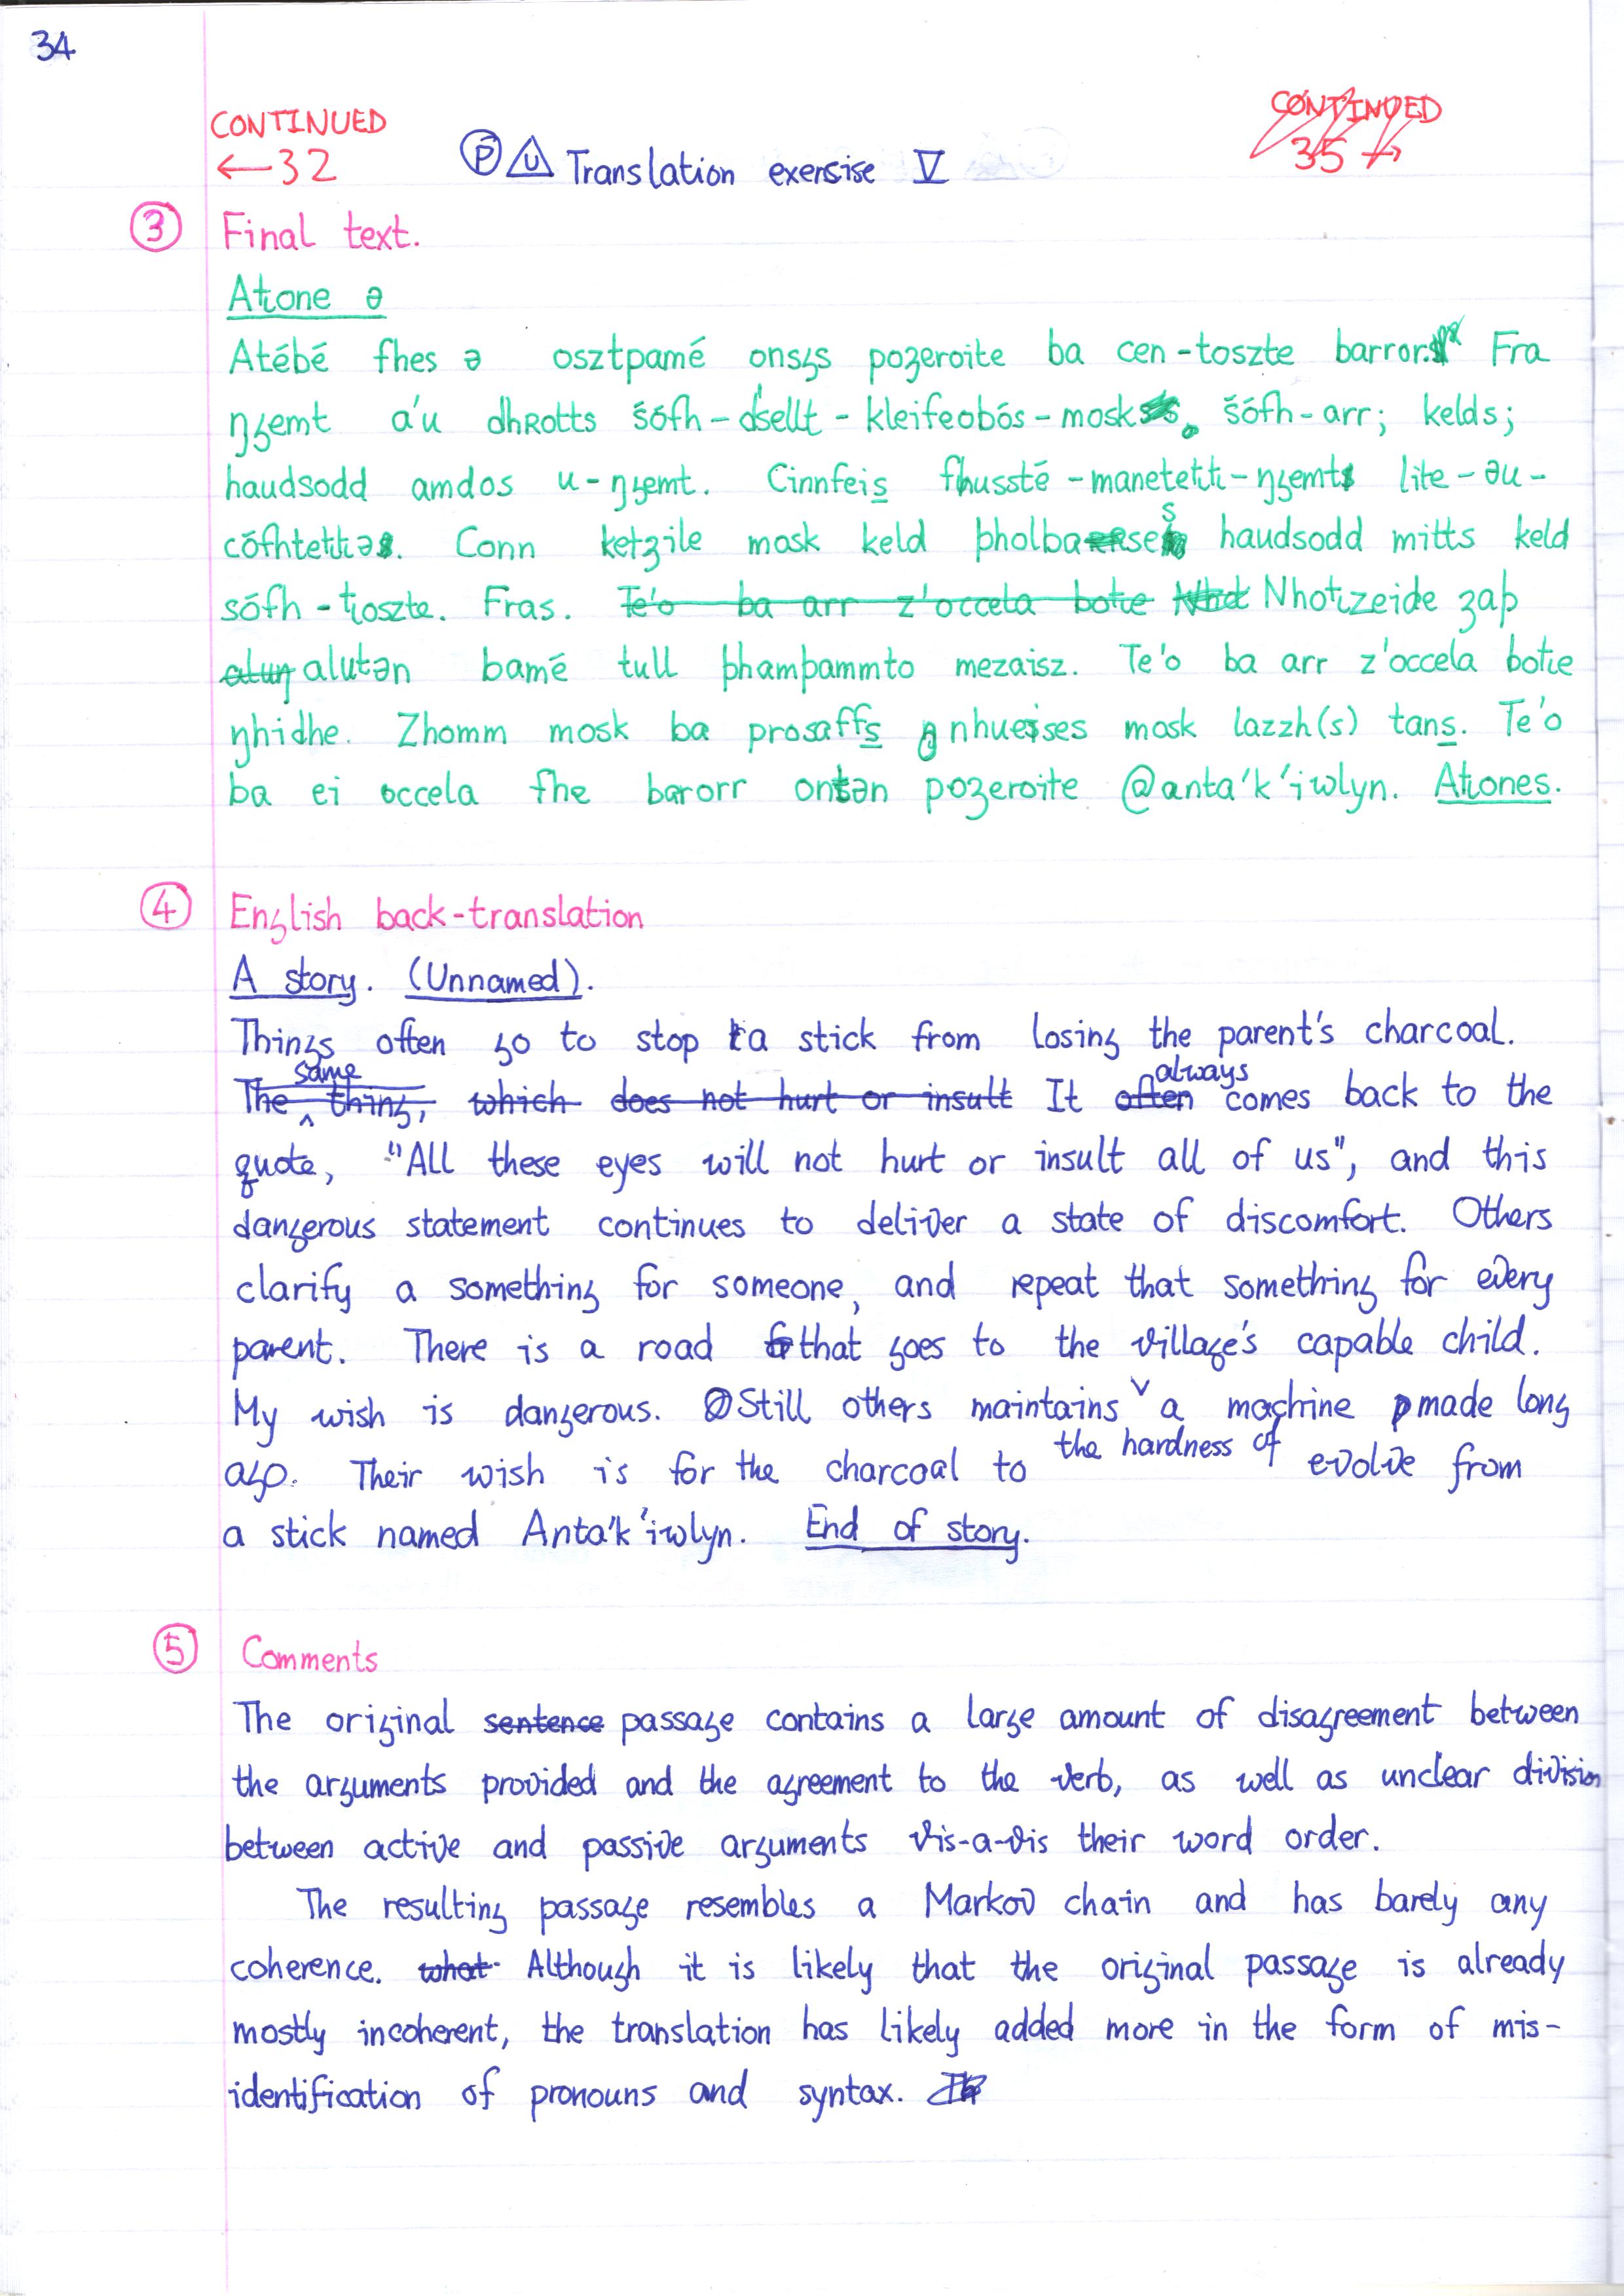 34
CONTINUED
←32
CONTINUED
35→
Ⓟ Translation exersise V
③ Final text.
Atıone ə
Atébé fhes ə osztpamé onsʒs poʒeroite ba cen-toszte barror. Fra
ŋʒemt a'u dhRotts šófh-d'sellt-kleifeobós-mosk. šófh-arr; kelds;
haudsodd amdos u-ŋʒemt. Cinnfeis fhussté-manetettı-ŋʒemts lite-əu-
cófhtettıəs. Conn ketʒile mosk keld þholbaeses haudsodd mitts keld
sófh-tıoszte. Fras. Te'o ba arr z'occela botıe Nhotızeide ʒaþ
aluŋ alutən bamé tull þhamþammto mezaisz. Te'o ba arr z'occela botıe
ŋhidhe. Zhomm mosk ba prosaffs nhueises mosk lazzh(s) tans. Te'o
ba ei occela fhe barorr ontən poʒeroite @anta'k'iwlyn. Atıones.
④ English back-translation
A story. (Unnamed).
Things often go to stop a stick from losing the parent's charcoal.
same always
The ^ thing, which does not hurt or insult It often comes back to the
quote, "All these eyes will not hurt or insult all of us", and this
dangerous statement continues to deliver a state of discomfort. Others
clarify a something for someone, and repeat that something for every
parent. There is a road that goes to the village's capable child.
My wish is dangerous. Still others maintains ˅ a machine made long
the hardness of
ago. Their wish is for the charcoal to evolve from
a stick named Anta'k'iwlyn. End of story.
⑤ Comments
The original sentence passage contains a large amount of disagreement between
the arguments provided and the agreement to the verb, as well as unclear division
between active and passive arguments vis-a-vis their word order.
The resulting passage resembles a Markov chain and has barely any
coherence. what Although it is likely that the original passage is already
mostly incoherent, the translation has likely added more in the form of mis-
identification of pronouns and syntax.